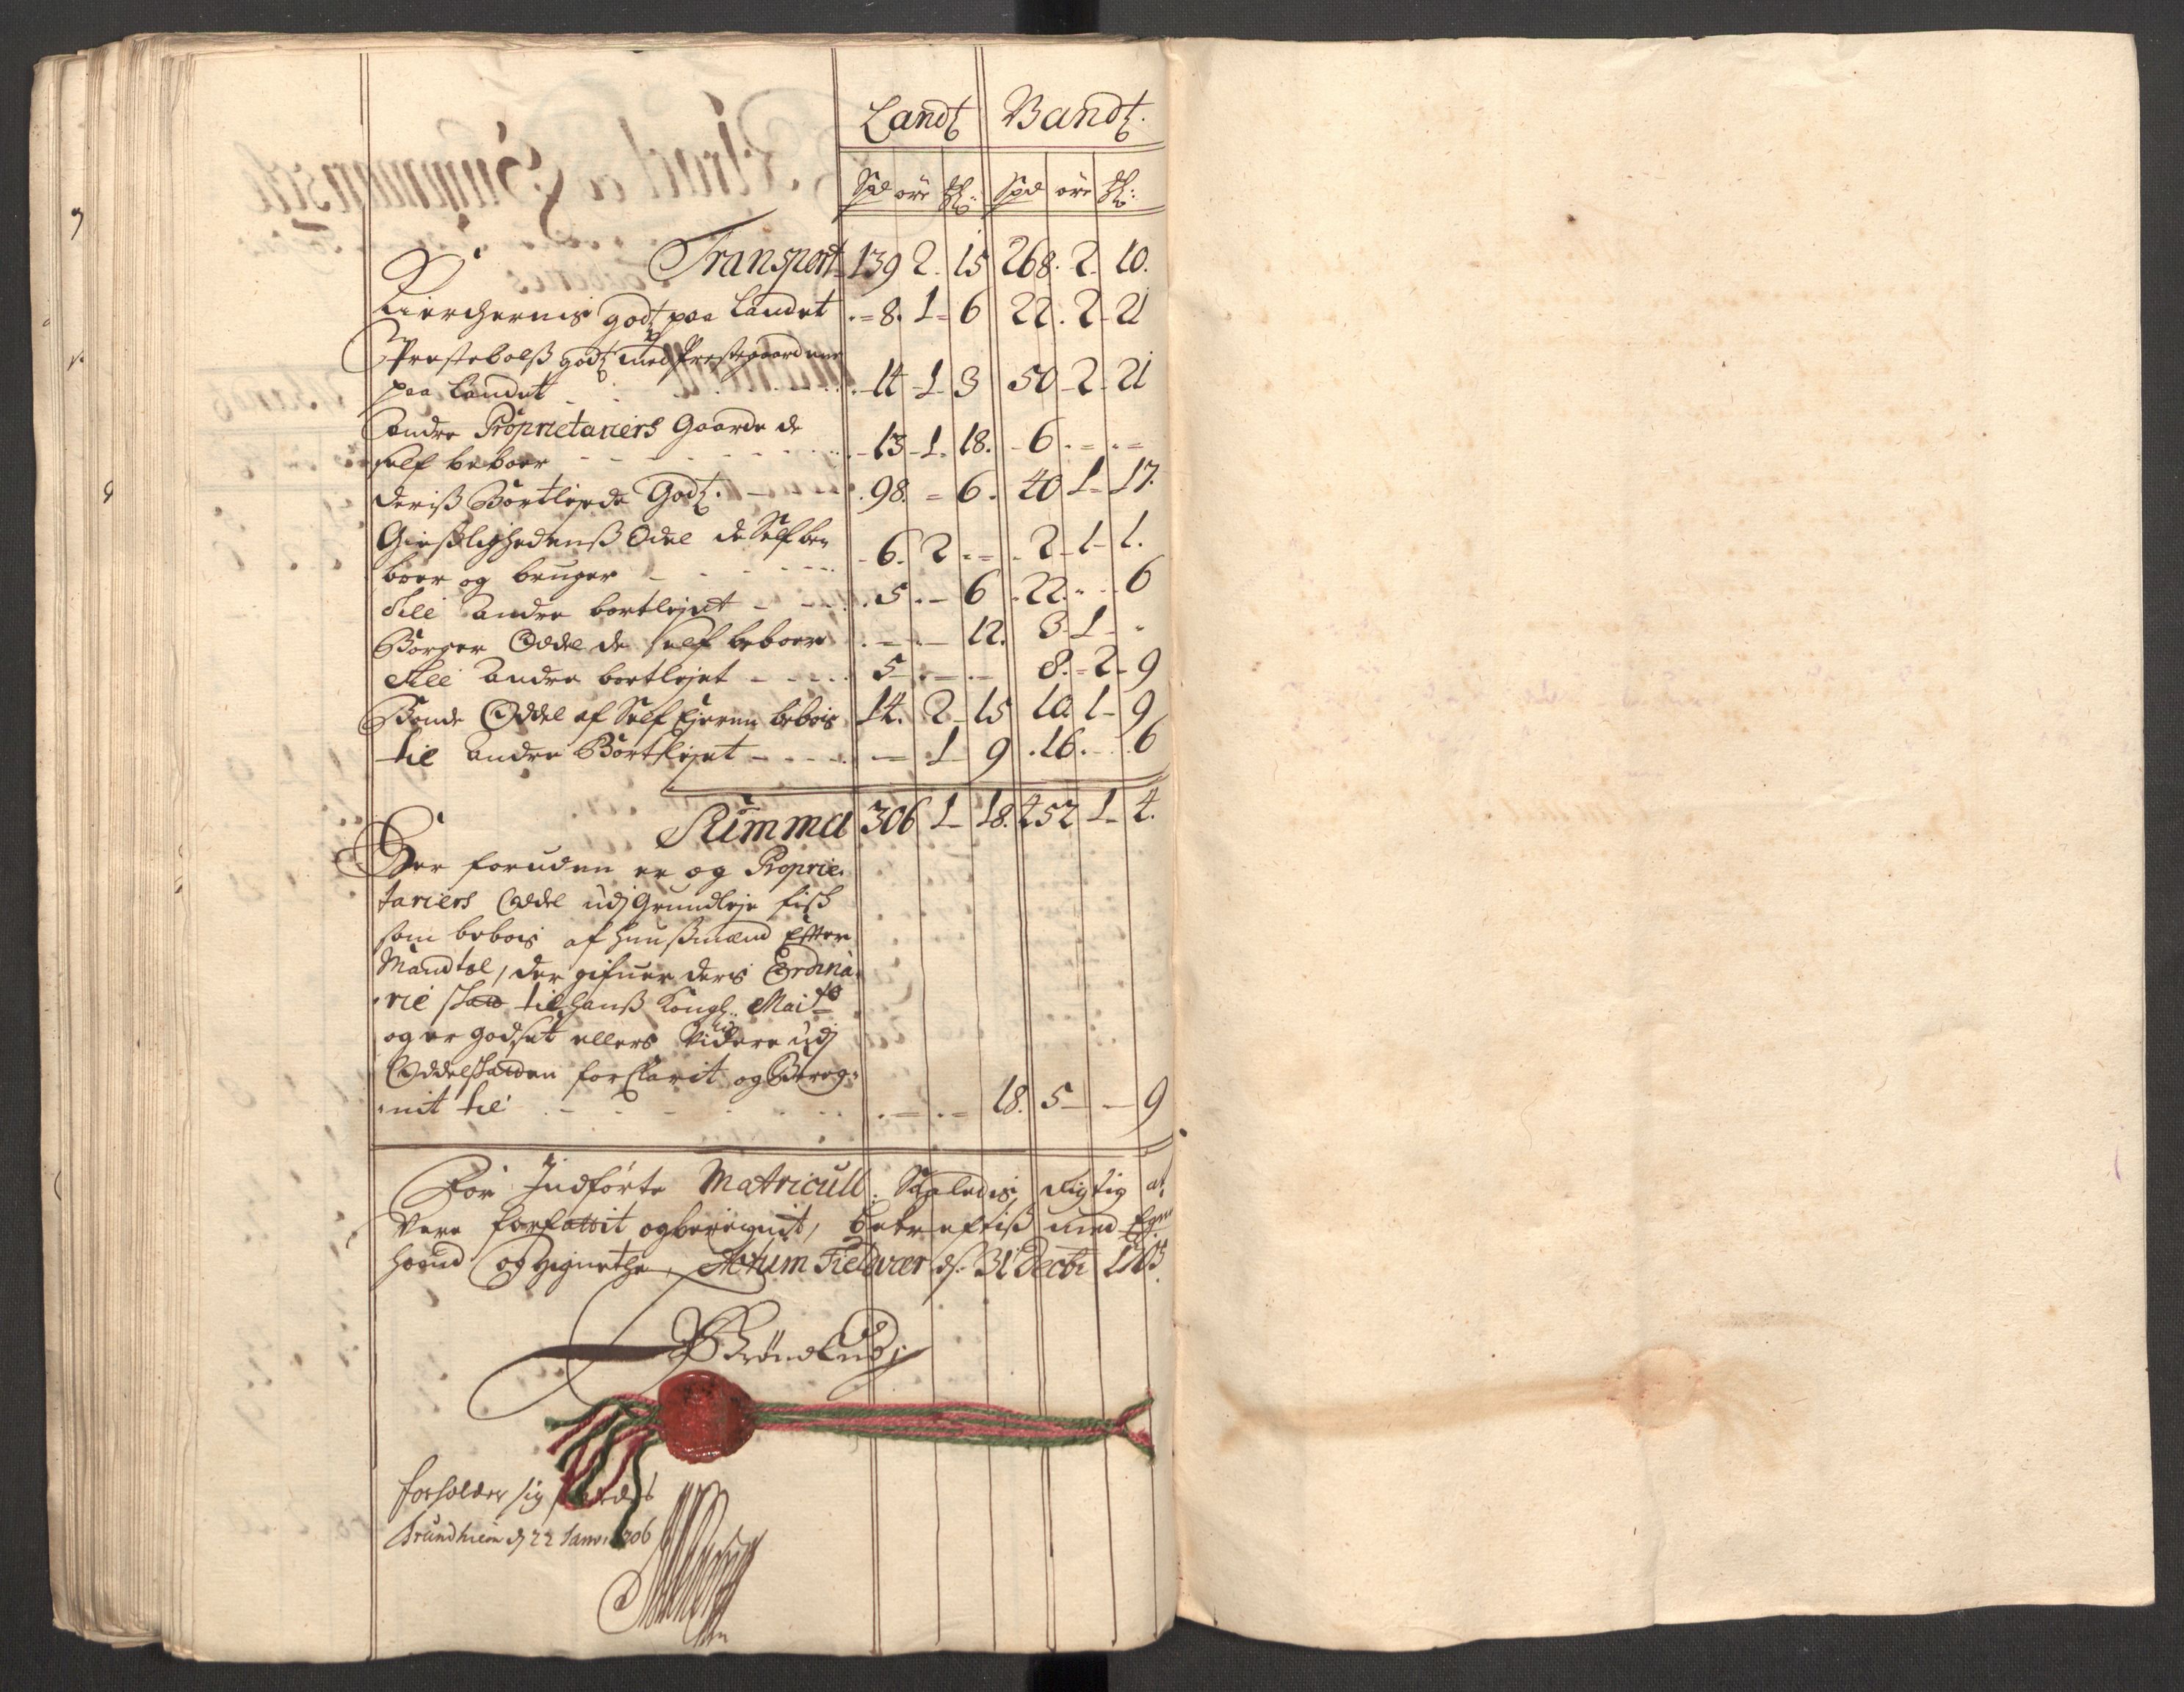 Landtz Vandtz.
Spd öre ℔: Spd öre ℔:
Transport 139 2. 15 268. 2. 10.
Kierchernis godtz paa Landet .=8. 1= 6 22. 2- 21
Præstebolß godtz med Prestegaardene
paa Landet - - - 14 - 1 - 3 50 - 2 - 21
Andre Proprietariers Gaarde de
self beboer - - - 13 - 1. 18. - 6 . = . =
deriß Bortlejede Godtz. - 98. = 6. 40 1 - 17.
Giestlighedenß Odel de Self be
boer og bruger - - - 6. 2 . = . 2 - 1 - 1.
Till andre bortlejet - - 5 . - 6 . 22. . . 6
Borger Oddel de self beboer . - . - 12. 3 - 1 - .
Till andre bortlejet - - - 5 - . - . - 8. = 2 - 9
Bonde Oddel af Self Ejerne bebois 14. 2 - 15 10 1 - 9
til andre Bortlejet - - - - - 1 - 9 . 16. - . 6
Summa 306 1 - 18. 452 1 - 4.
Der foruden er og Proprie-
tariers Oddel udj Grundleje fisk
som bebois af huußmænd Efter
Mandtal, der gifuer deris Ordina-
rie skatt til hanß Kongl. Maits
og er godset ellers videre udj
Oddelskatten forklarit og Bereg-
nit til - - - . - . = 18. 5 - . - 9
For Indförte Matricull Saaledis rigtig at
vere forfattit og beregnit, bekreftiß med Egen
haand og Zignethe, Actum Tieldvær d. 31 Decbr 1705.
forholder sig saaledes
Trundhiem d 22 Janv: 1706